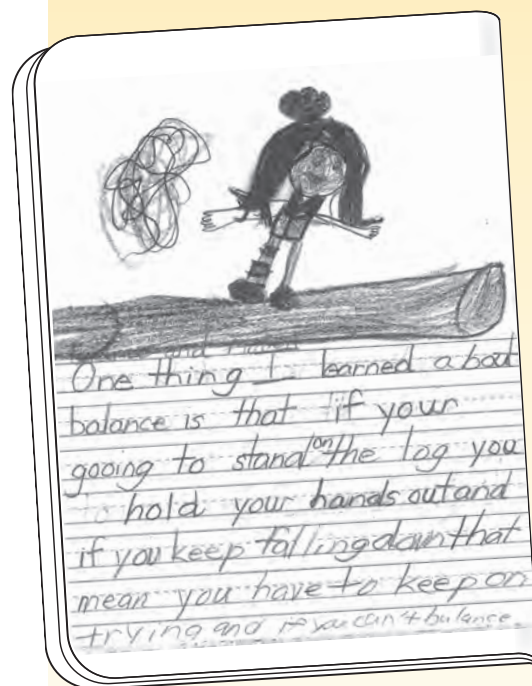 One thing I learned about
balance is that if your
gooing to stand on the log you
hold your hands out and
if you keep falling down that
mean you have to keep on
trying and if you can't balance.